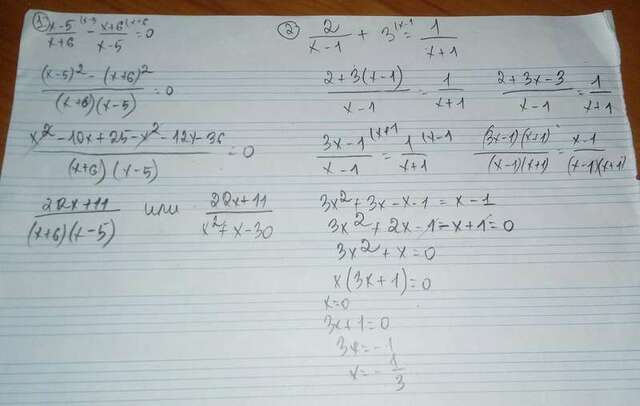 1) (x-5)/(x+6) ^(x-5) - (x+6)/(x-5) ^(x+6 = 0
((x-5)² - (x+6)²)/((x+6)(x-5)) = 0
(x² - 10x + 25 - x² - 12x - 36)/((x+6)(x-5)) = 0
(22x+11)/((x+6)(x-5)) или (22x+11)/(x²+x-30)
2) 2/(x-1) + 3 ^(x-1 = 1/(x+1)
(2+3(x-1))/(x-1) = 1/(x+1) (2+3x-3)/(x-1) = 1/(x+1)
(3x-1)/(x-1) ^(x+1 = 1/(x+1) ^(x-1 ((3x-1)(x+1))/((x-1)(x+1)) = (x-1)/((x-1)(x+1))
3x² + 3x - x - 1 = x - 1
3x² + 2x - 1 - x + 1 = 0
3x² + x = 0
x(3x+1) = 0
x=0
3x+1=0
3x=-1
x=-1/3